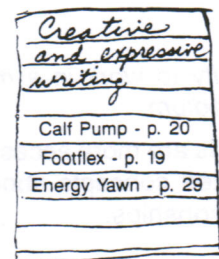 Creative
and expressive
writing
Calf Pump - p. 20
Footflex - p. 19
Energy Yawn - p. 29